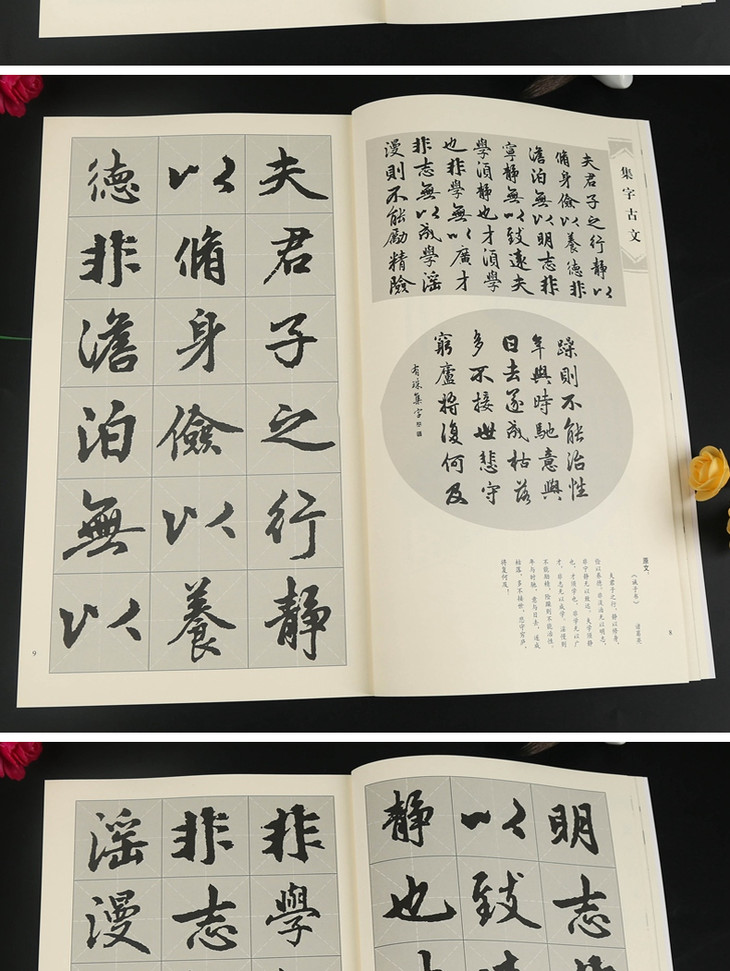 集字古文
夫君子之行静以
脩身儉以養德非
澹泊無以明志非
寧静無以致遠夫
學須静也才須學
也非學無以廣才
非志無以成學滛
漫則不能勵精險
躁則不能治性
年與時馳意與
日去遂成枯落
多不接世悲守
窮廬將復何及
有琛集字
原文：
《诫子书》 诸葛亮
夫君子之行，静以修身，
俭以养德。非淡泊无以明志，
非宁静无以致远。夫学须静
也，才须学也，非学无以广
才，非志无以成学。淫慢则
不能励精，险躁则不能治性。
年与时驰，意与日去，遂成
枯落，多不接世，悲守穷庐，
将复何及！
8
夫君子之行静
以脩身儉以養
德非澹泊無以
9
明志
以致
静也
非學
非志
滛漫